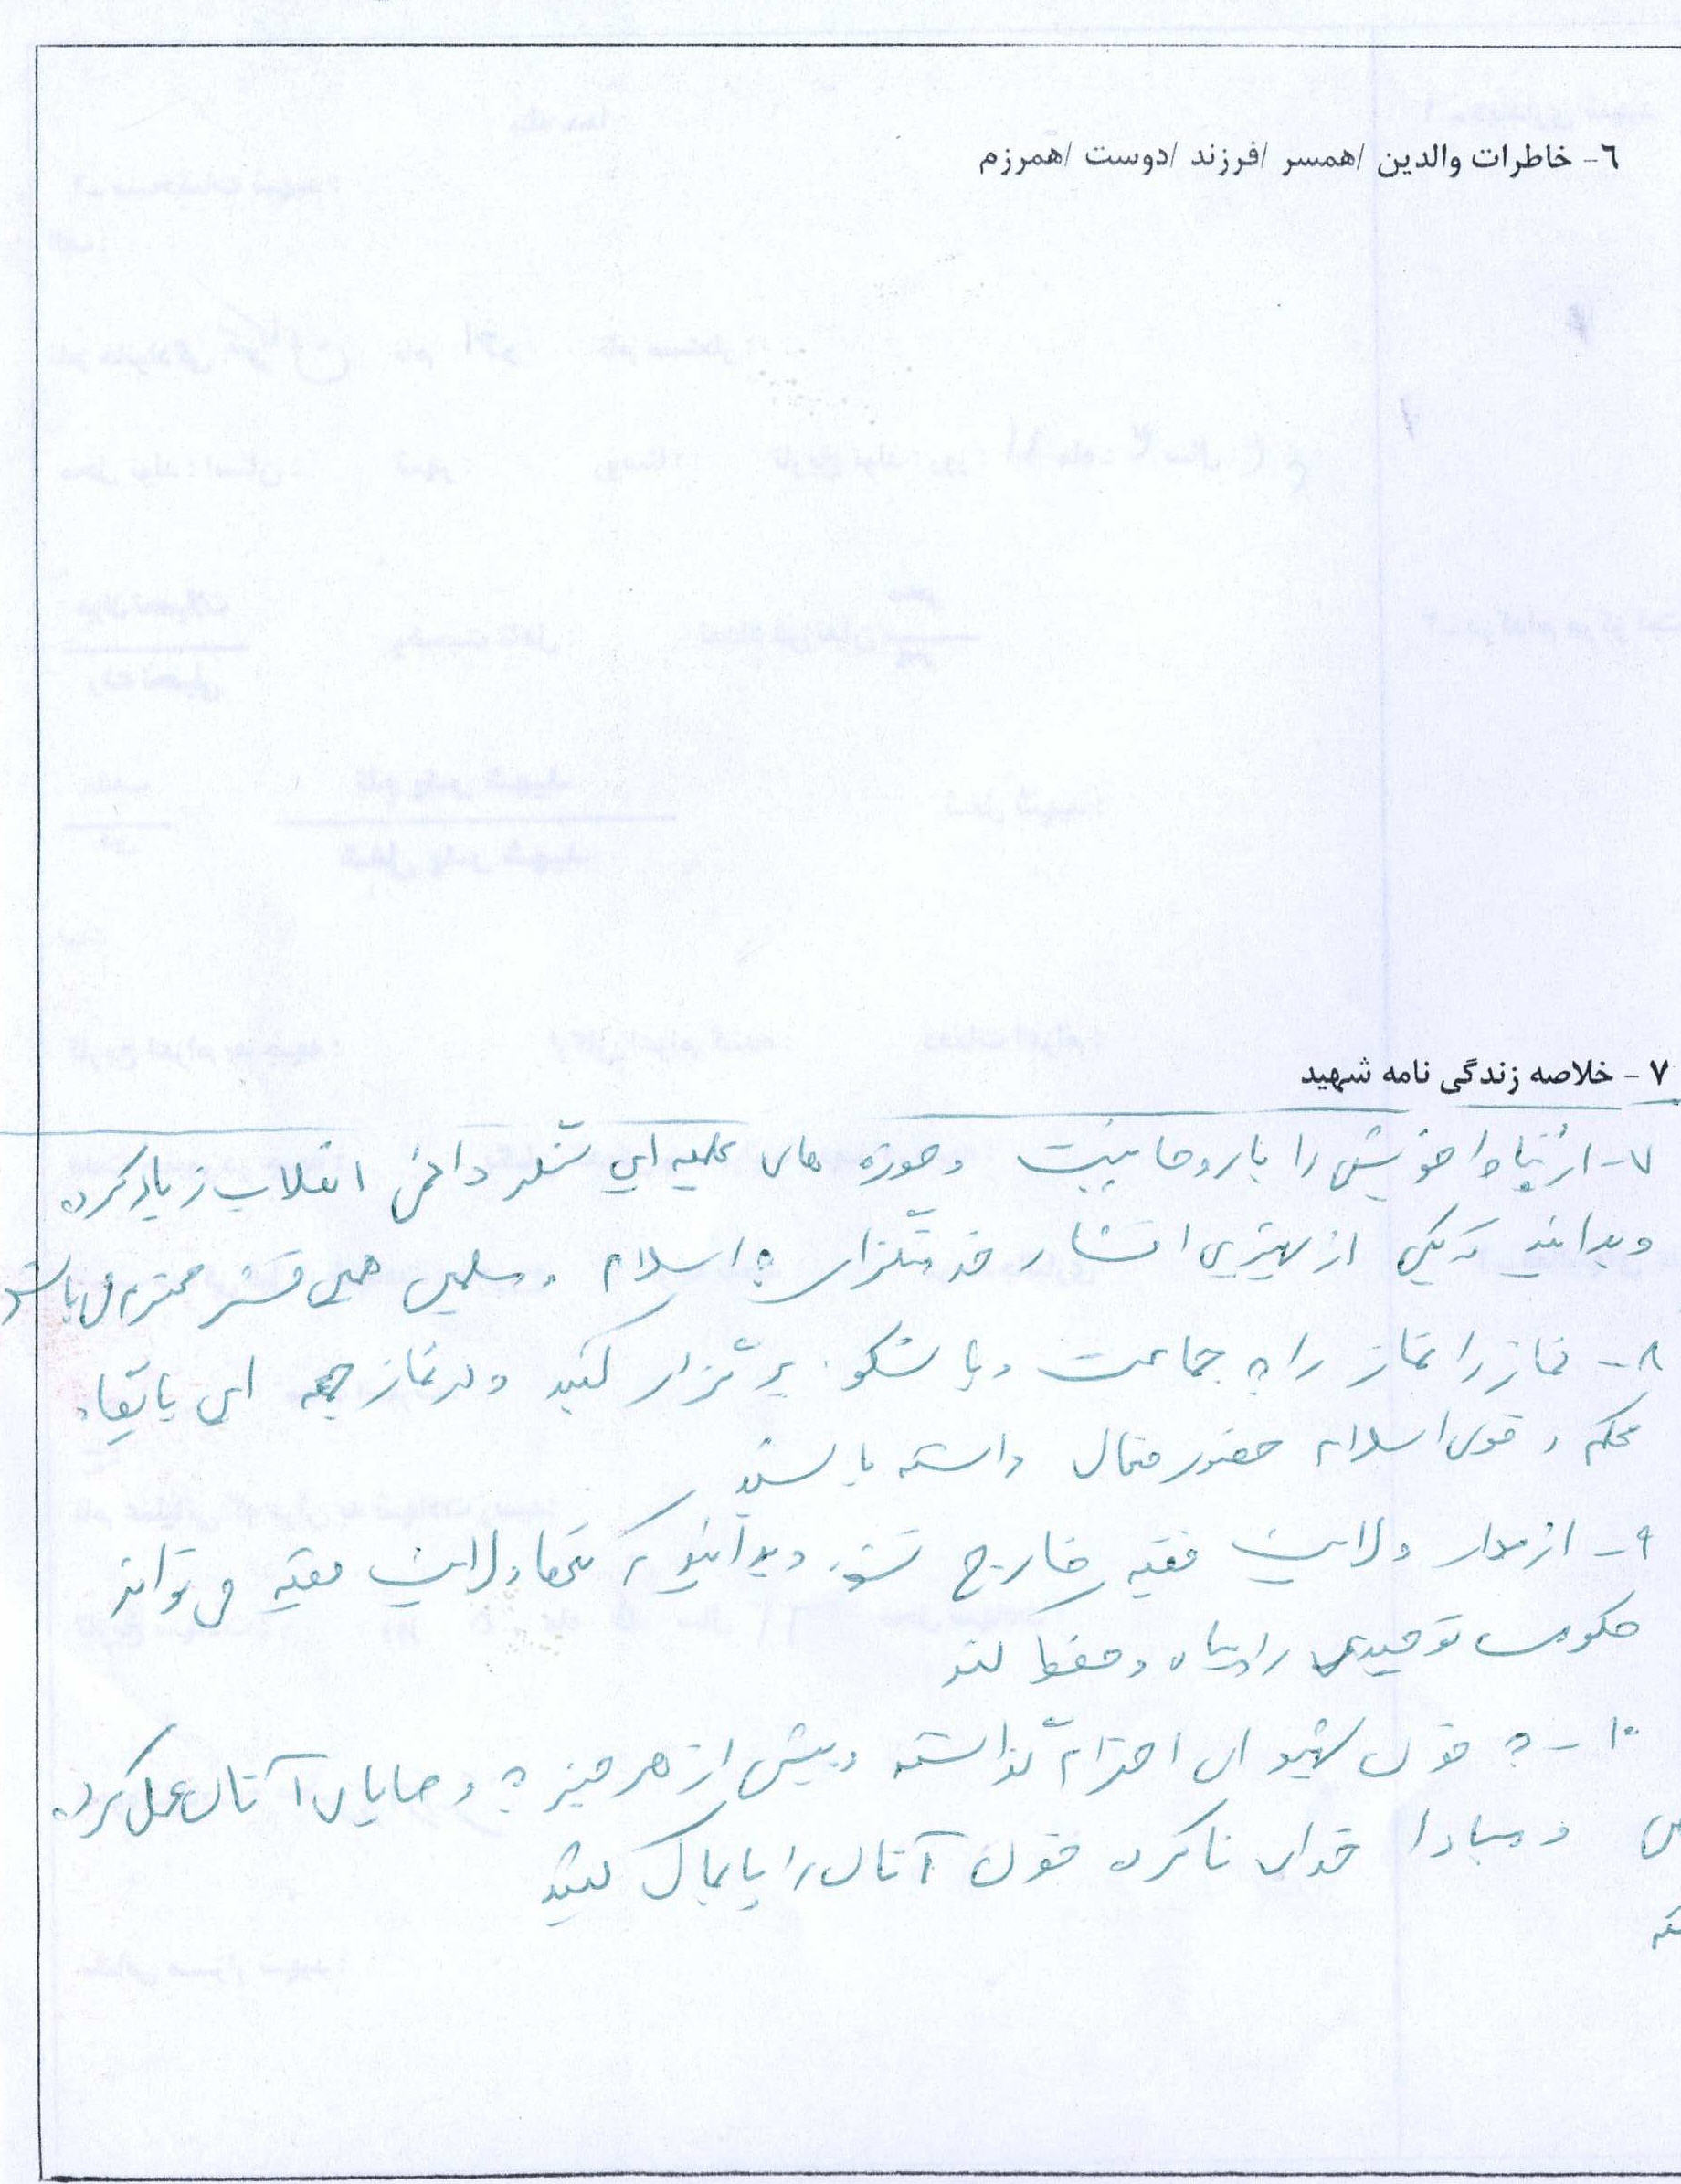 ٦- خاطرات والدین /همسر /فرزند /دوست /همرزم
٧ - خلاصه زندگی نامه شهید
٧- ارتباط خویش را با روحانیت و حوزه های علمیه این سنگر داغ انقلاب زیاد کرده
و بدانید که یکی از بهترین اقشار خدمتگزار به اسلام و مسلمین همین قشر محترم می باشد
٨- نماز را نماز را به جماعت و با شکوه برگزار کنید و در نماز جمعه این پایگاه
محکم و قوی اسلام حضور فعال داشته باشید
٩- از مدار ولایت فقیه خارج نشوید و بدانید که تنها ولایت فقیه می تواند
حکومت توحیدی را پیاده و حفظ کند
١٠- به خون شهیدان احترام گذاشته و بیش از هر چیز به وصایای آنان عمل کرده
و مبادا خدای ناکرده خون آنان را پایمال کنید